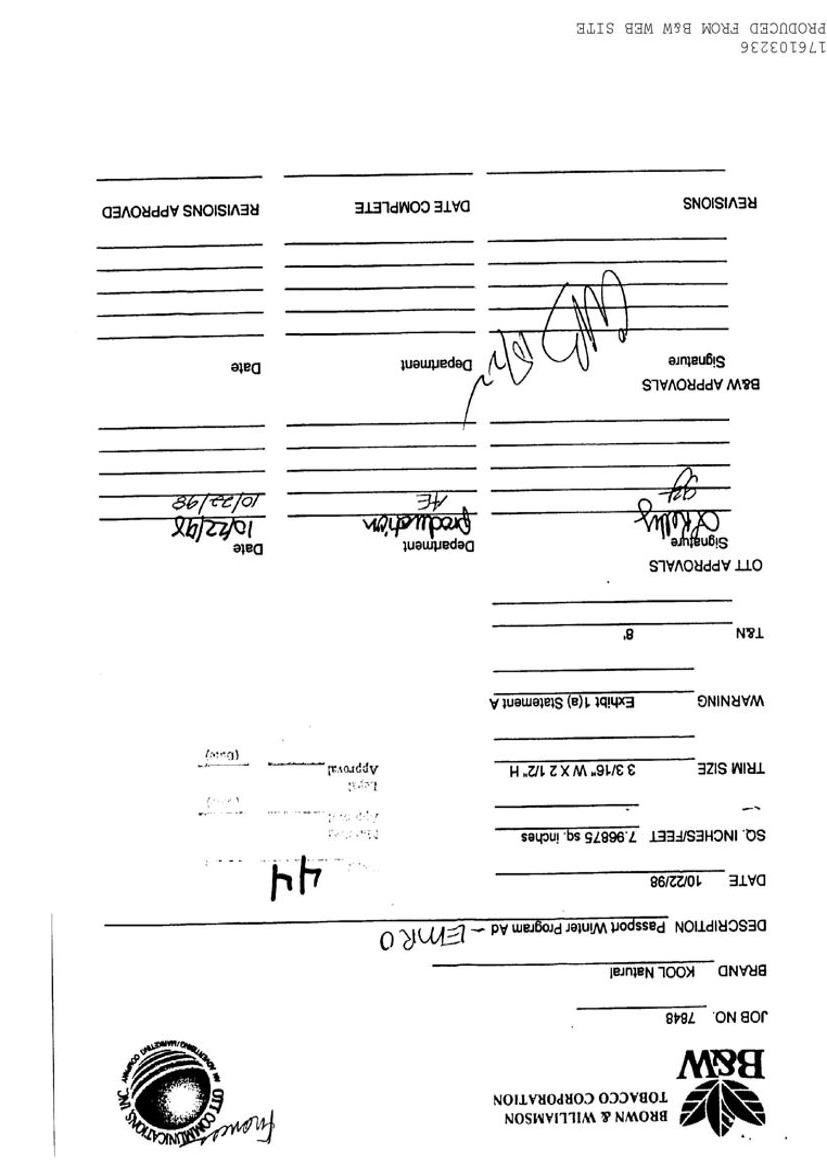 Frances
BROWN & WILLIAMSON
TOBACCO CORPORATION
B&W
OTT COMMUNICATIONS, INC.
AN ADVERTISING/MARKETING COMPANY
JOB NO. 7848
BRAND KOOL Natural
DESCRIPTION Passport Winter Program Ad - EMRO
DATE 10/22/98
44
SQ. INCHES/FEET 7.96875 sq. inches
Approval (Date)
Legal
TRIM SIZE 3 3/16" W X 2 1/2" H
Approval (Date)
WARNING Exhibt 1(a) Statement A
T&N 8'
OTT APPROVALS
Signature Department Date
Production 10/22/98
AE 10/22/98
B&W APPROVALS
Signature Department Date
REVISIONS DATE COMPLETE REVISIONS APPROVED
176103236
PRODUCED FROM B&W WEB SITE